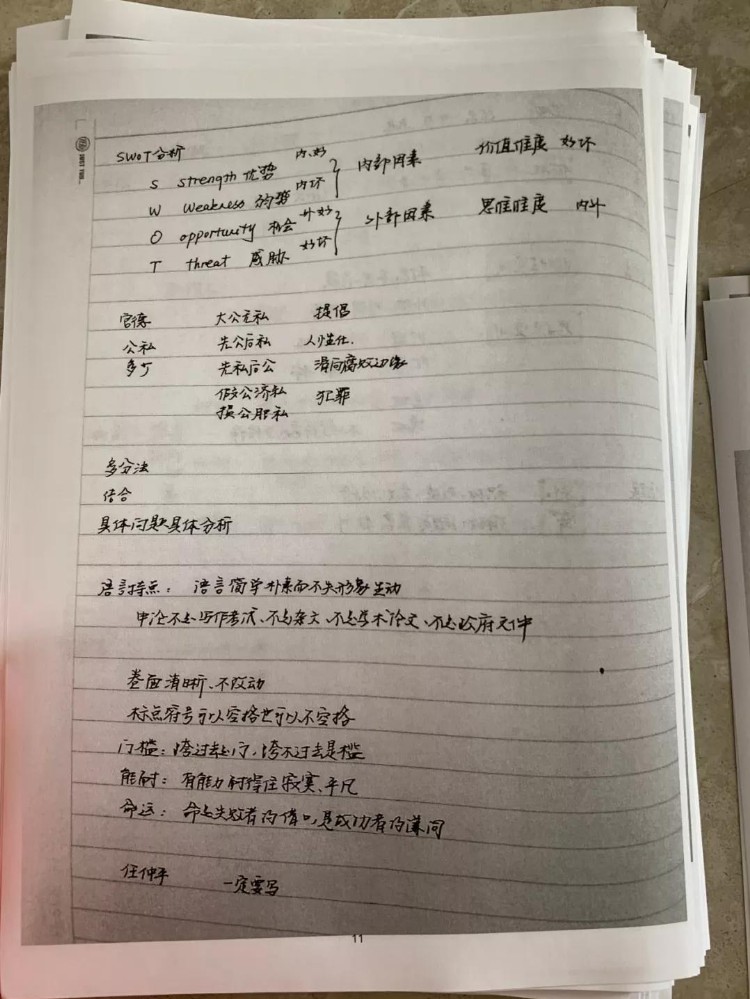 SWOT分析
S strength 优势 内.好 } 内部因素 价值维度 好坏
W Weakness 弱势 内坏
O opportunity 机会 外好 } 外部因素 思维维度 内外
T threat 威胁 好坏
官德 大公无私 提倡
公私 先公后私 人性化.
多少 先私后公 滑向腐败边缘
假公济私 犯罪
损公肥私
多分法
结合
具体问题具体分析
语言特点: 语言简单朴素而不失形象生动
申论不是写作考试、不是杂文、不是学术论文、不是政府文件
卷面清晰、不改动
标点符号可以空格也可以不空格
门槛: 跨过去是门, 跨不过去是槛
能耐: 有能力耐得住寂寞、平凡
命运: 命是失败者的借口,是成功者的谦词
任仲平 一定要写
11